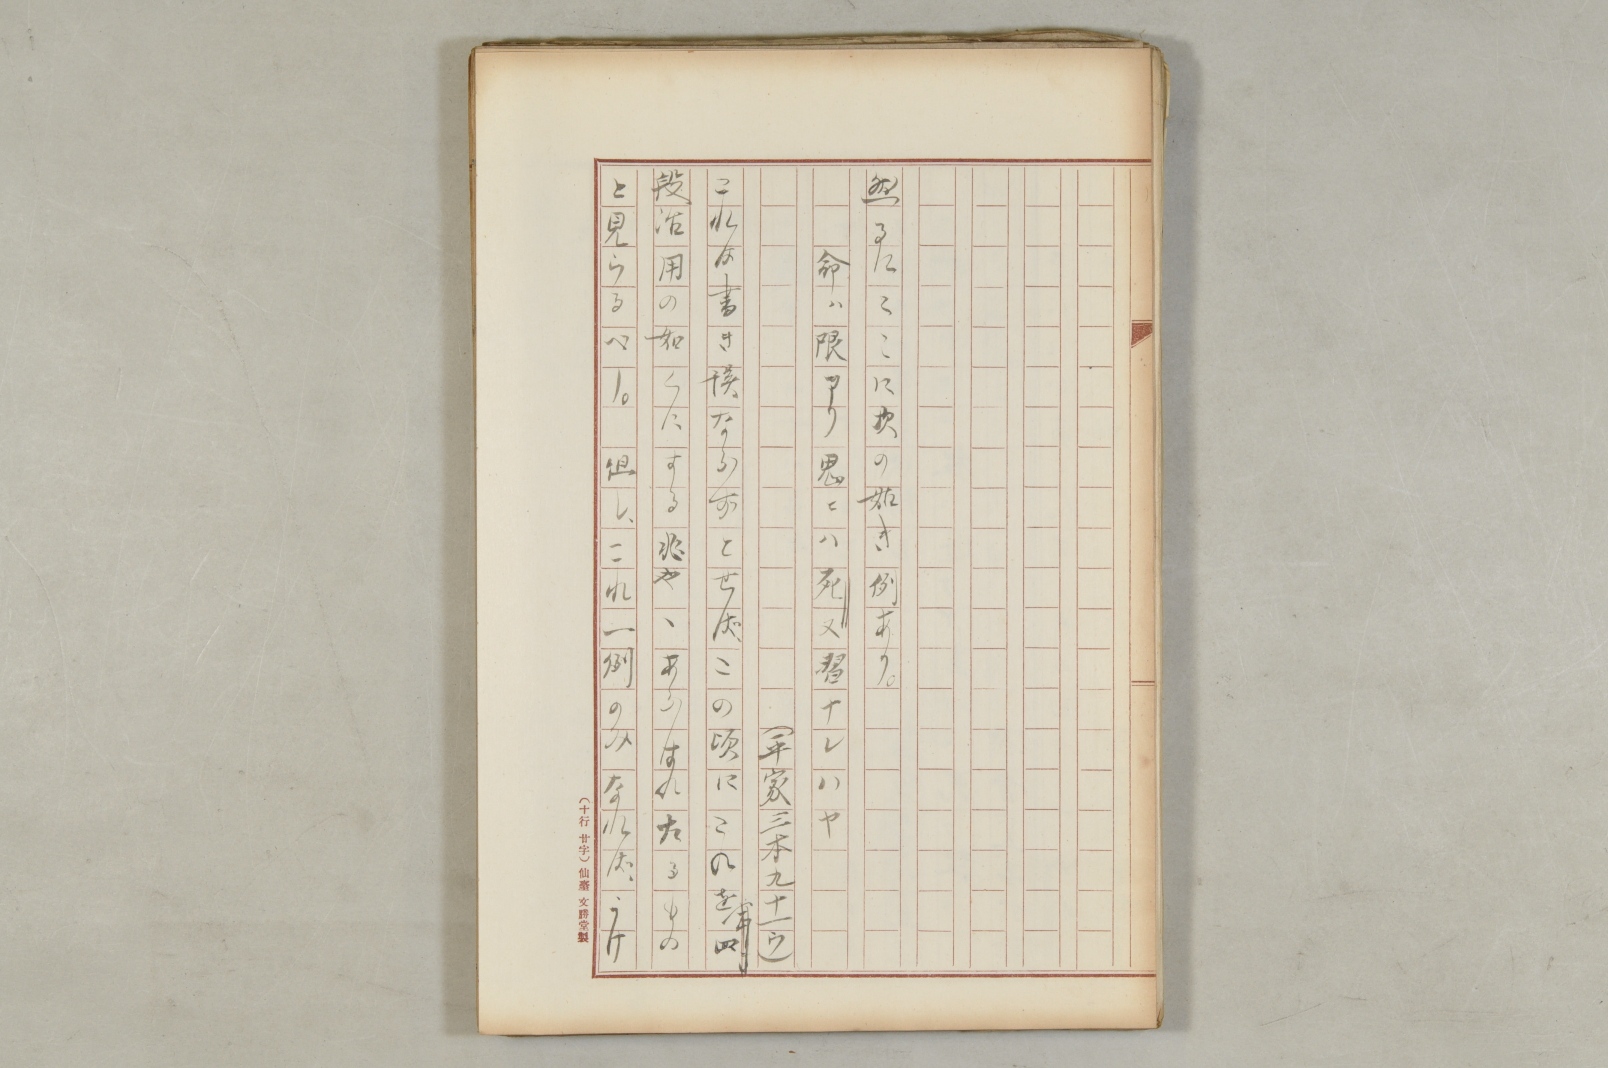 然るにここに次の如き例あり。
命ハ限アリ思ヒハ死又習ナレハヤ
(平家三本九十一ウ)
これは書き誤ならずとせば、この頃にこれを四
段活用の如くにする兆や、あらはれたるもの
と見らるべし。但し、これ一例のみなれば、うけ
(十行 廿字)仙臺 文勝堂製